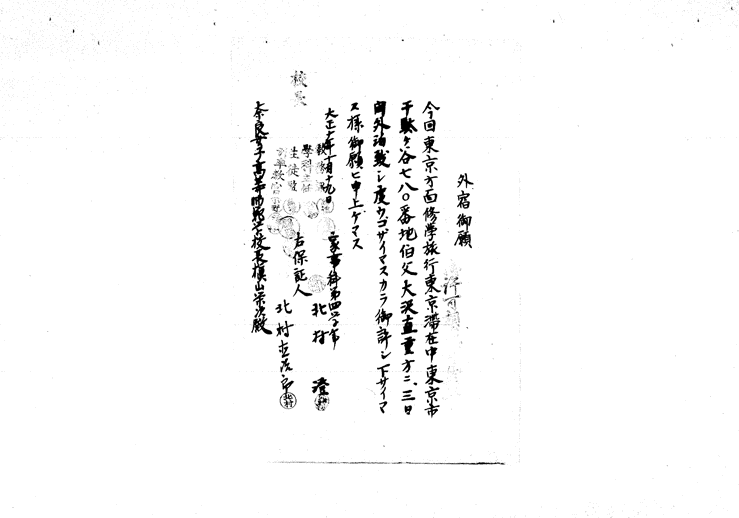 外宿御願
許可
今回東京方面修学旅行東京滞在中東京市
千駄ヶ谷七八〇番地伯父大沢直重方ニ二、三日
間外泊致シ度ウゴザイマスカラ御許シ下サイマ
ス様御願ヒ申上ゲマス
大正 年 月十九日
家事科第四学年
北村 澄
右保証人
北村
校長
生徒
奈良女子高等師範学校長槇山栄次殿